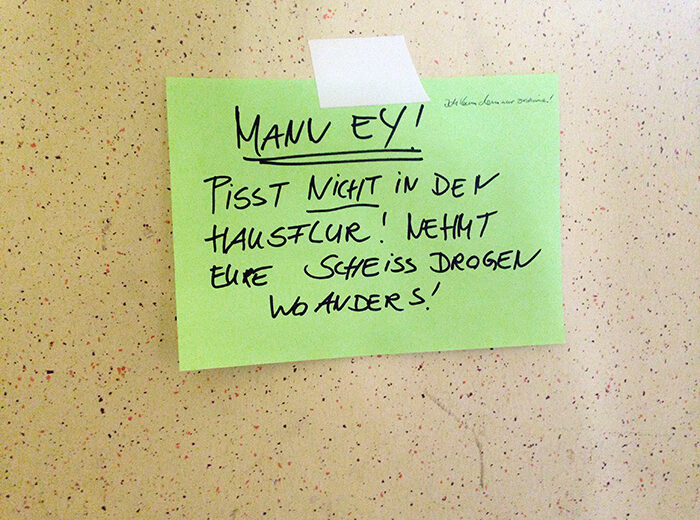 MANN EY!
PISST NICHT IN DEN
HAUSFLUR! NEHMT
EURE SCHEISS DROGEN
WOANDERS!